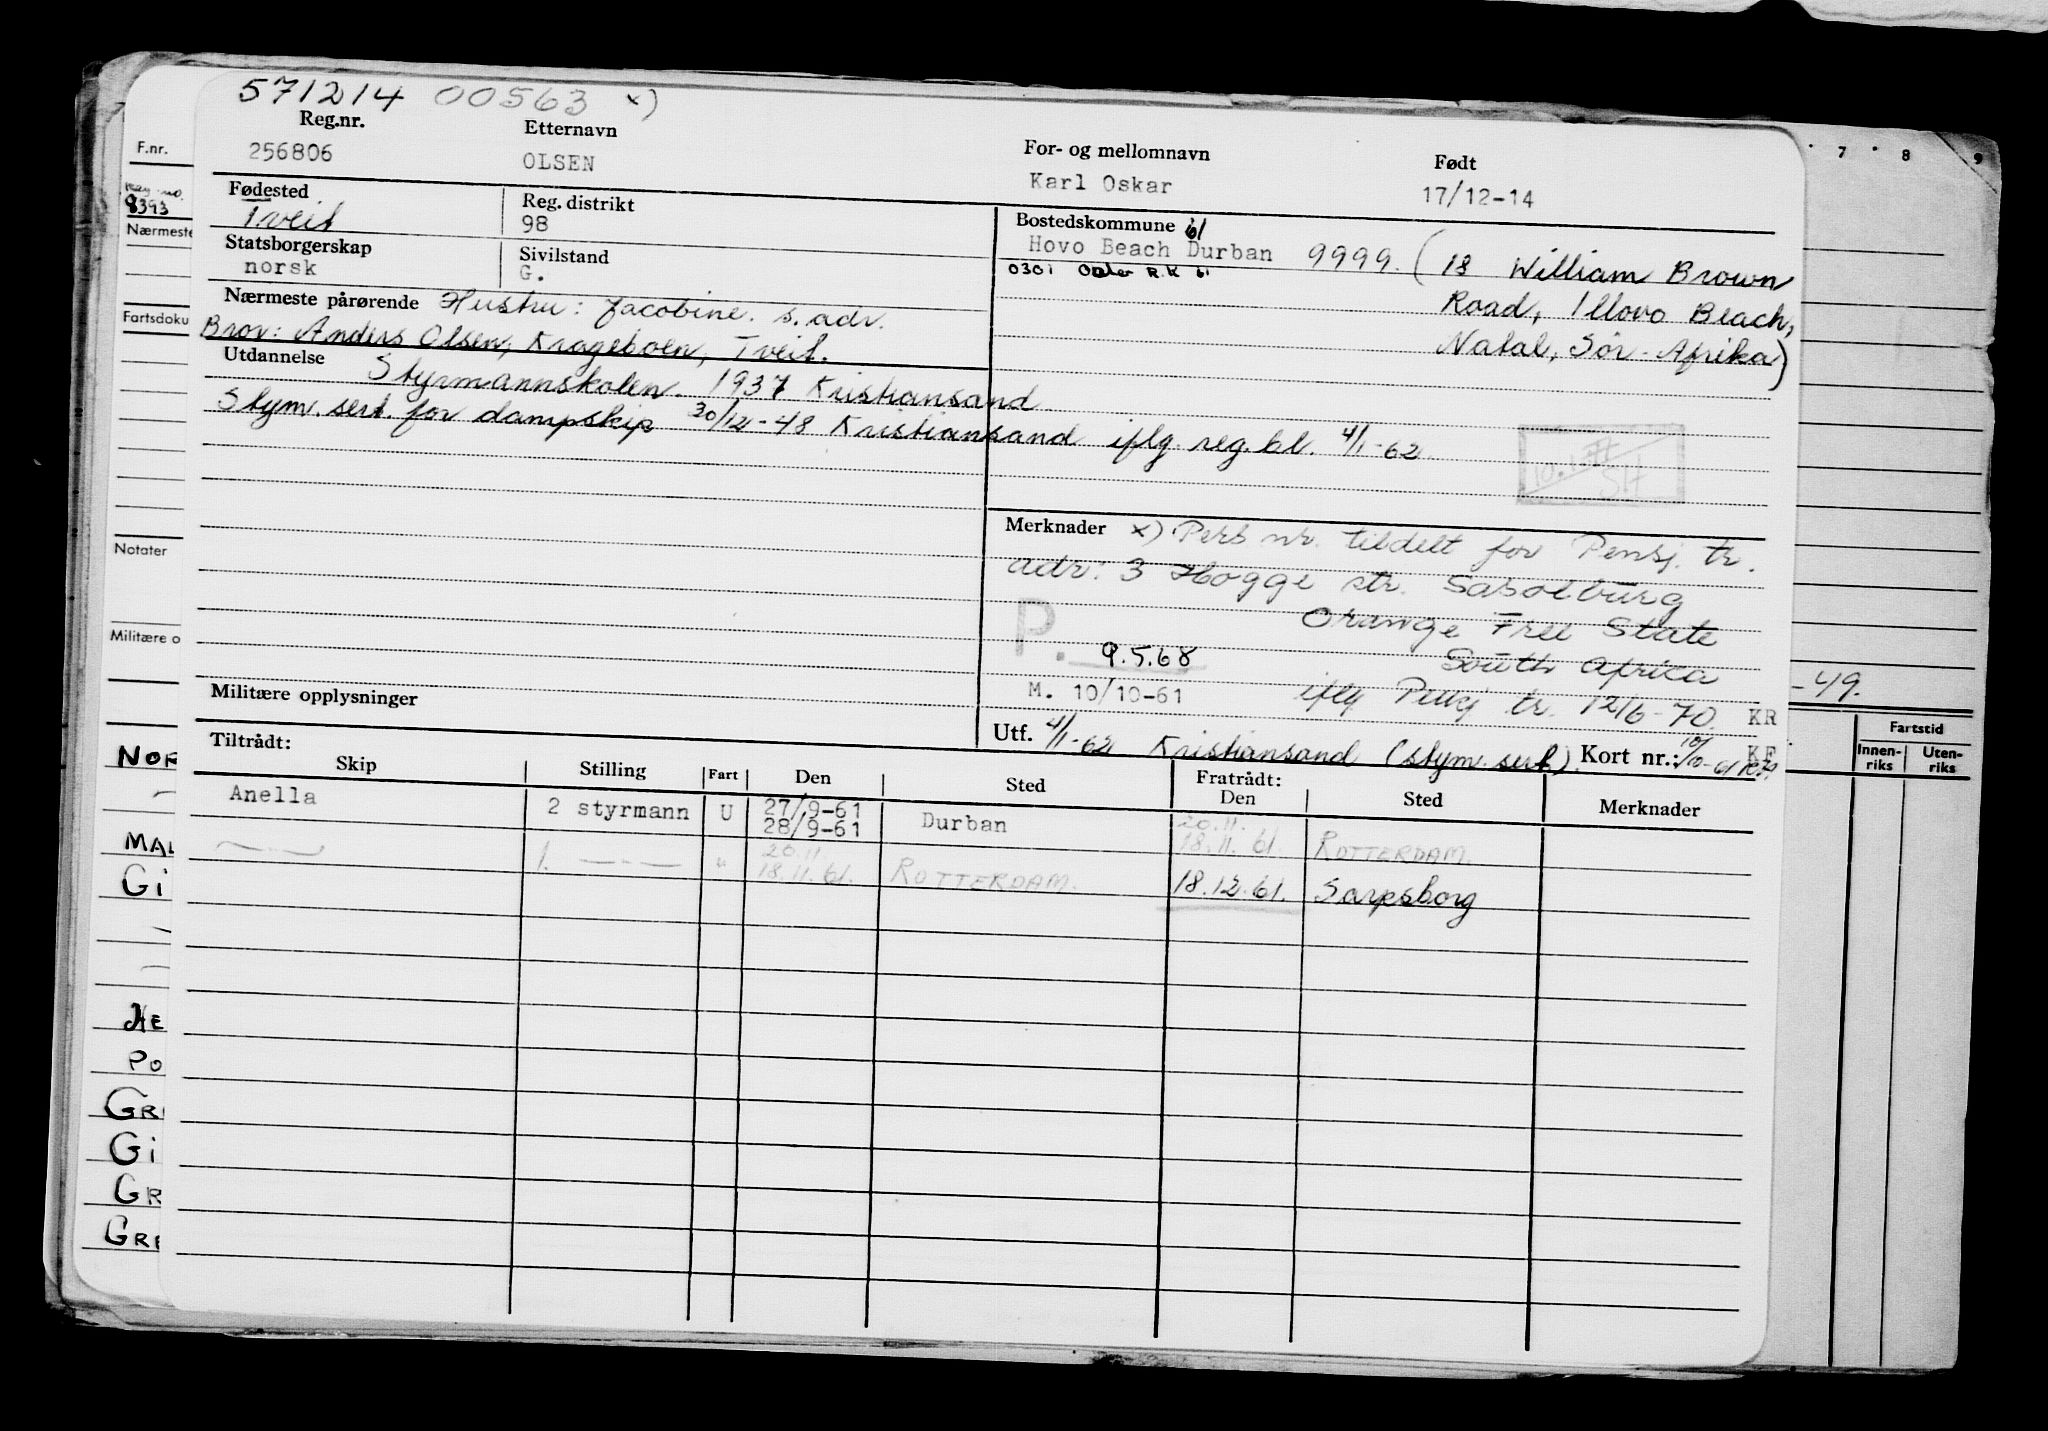 571214 00563 x)
Reg.nr. Etternavn For- og mellomnavn Født
256806 OLSEN Karl Oskar 17/12-14
Fødested Reg. distrikt Bostedskommune 61
Tveit 98 Hovo Beach Durban 9999. (18 William Brown
Road, Illovo Beach,
Natal, Sør-Afrika)
0301 R.K 61
Statsborgerskap Sivilstand
norsk G.
Nærmeste pårørende Hustru: Jacobine. s. adr.
Bror: Anders Olsen, Krageboen, Tveit.
Utdannelse Styrmannskolen. 1937 Kristiansand
Stym. sert. for dampskip 30/12-48 Kristiansand iflg. reg. bl. 4/1-62.
Merknader x) Pers nr. tildelt for Pensj. tr.
adr: 3 Hogge str. Sasolburg
Orange Free State
South Africa
P. 9.5.68
M. 10/10-61 iflg Pensj tr. 12/6-70. KR
Militære opplysninger
Utf. 4/1-62 Kristiansand (stym. sert). Kort nr.: 10/10-61 KF
Tiltrådt: Fratrådt:
Skip Stilling Fart Den Sted Den Sted Merknader
Anella 2 styrmann U 27/9-61 Durban 20.11. ROTTERDAM.
28/9-61 18.11.61.
—"— 1. —"— " 20.11 ROTTERDAM. 18.12.61. Sarpsborg
18.11.61.
F.nr.
Reg. no.
8393
Nærmeste
Fartsdoku
Notater
Militære o
NOR
MAL
Gi
HE
PO
GR
Gi
GR
GRE
7 8 9
-49.
Fartstid
Innen-
riks
Uten-
riks